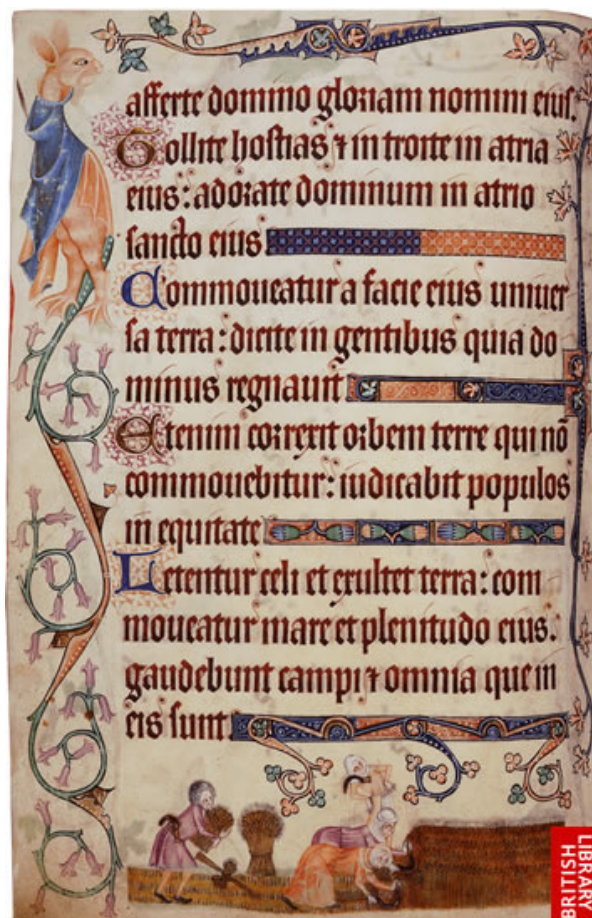 afferte domino gloriam nomini eius.
Tollite hostias ⁊ in troite in atria
eius: adorate dominum in atrio
sancto eius
Commoueatur a facie eius uniuer
sa terra: dicite in gentibus quia do
minus regnauit
Etenim correxit orbem terre qui nō
commouebitur: iudicabit populos
in equitate
Letentur celi et exultet terra: com
moueatur mare et plenitudo eius.
gaudebunt campi ⁊ omnia que in
eis sunt
BRITISH
LIBRARY